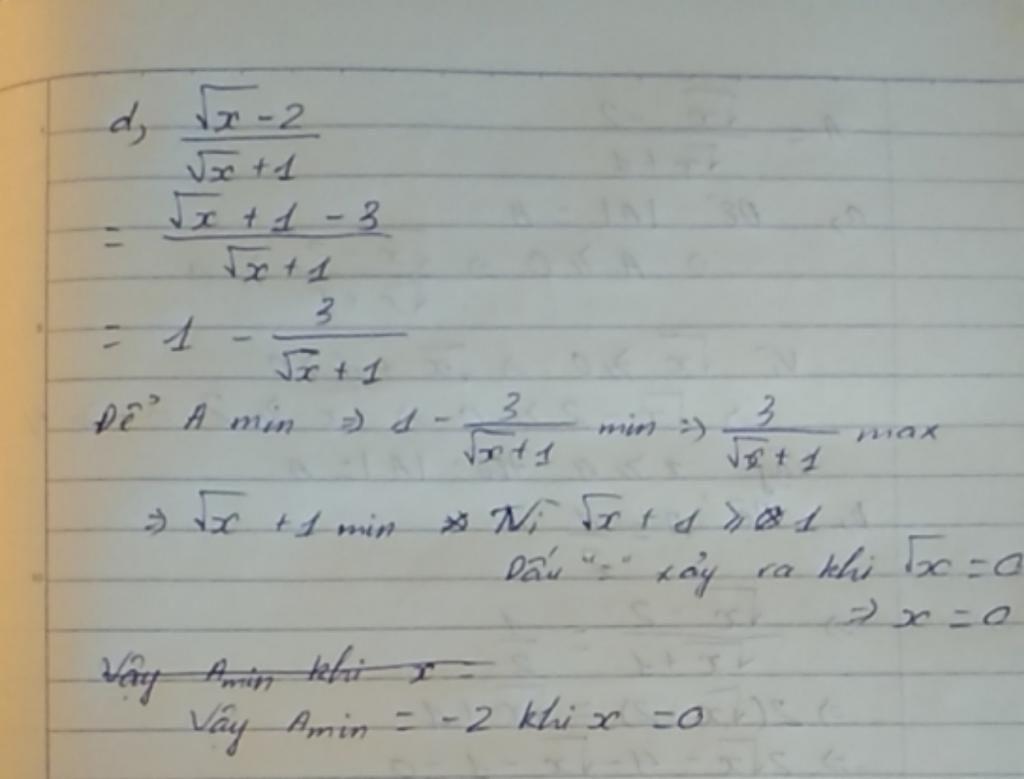 d, (√x - 2)/(√x + 1)
= (√x + 1 - 3)/(√x + 1)
= 1 - 3/(√x + 1)
Để A min => 1 - 3/(√x + 1) min => 3/(√x + 1) max
=> √x + 1 min Vì √x + 1 ≥ 1
Dấu "=" xảy ra khi √x = 0
=> x = 0
Vậy Amin khi x =
Vây Amin = -2 khi x = 0